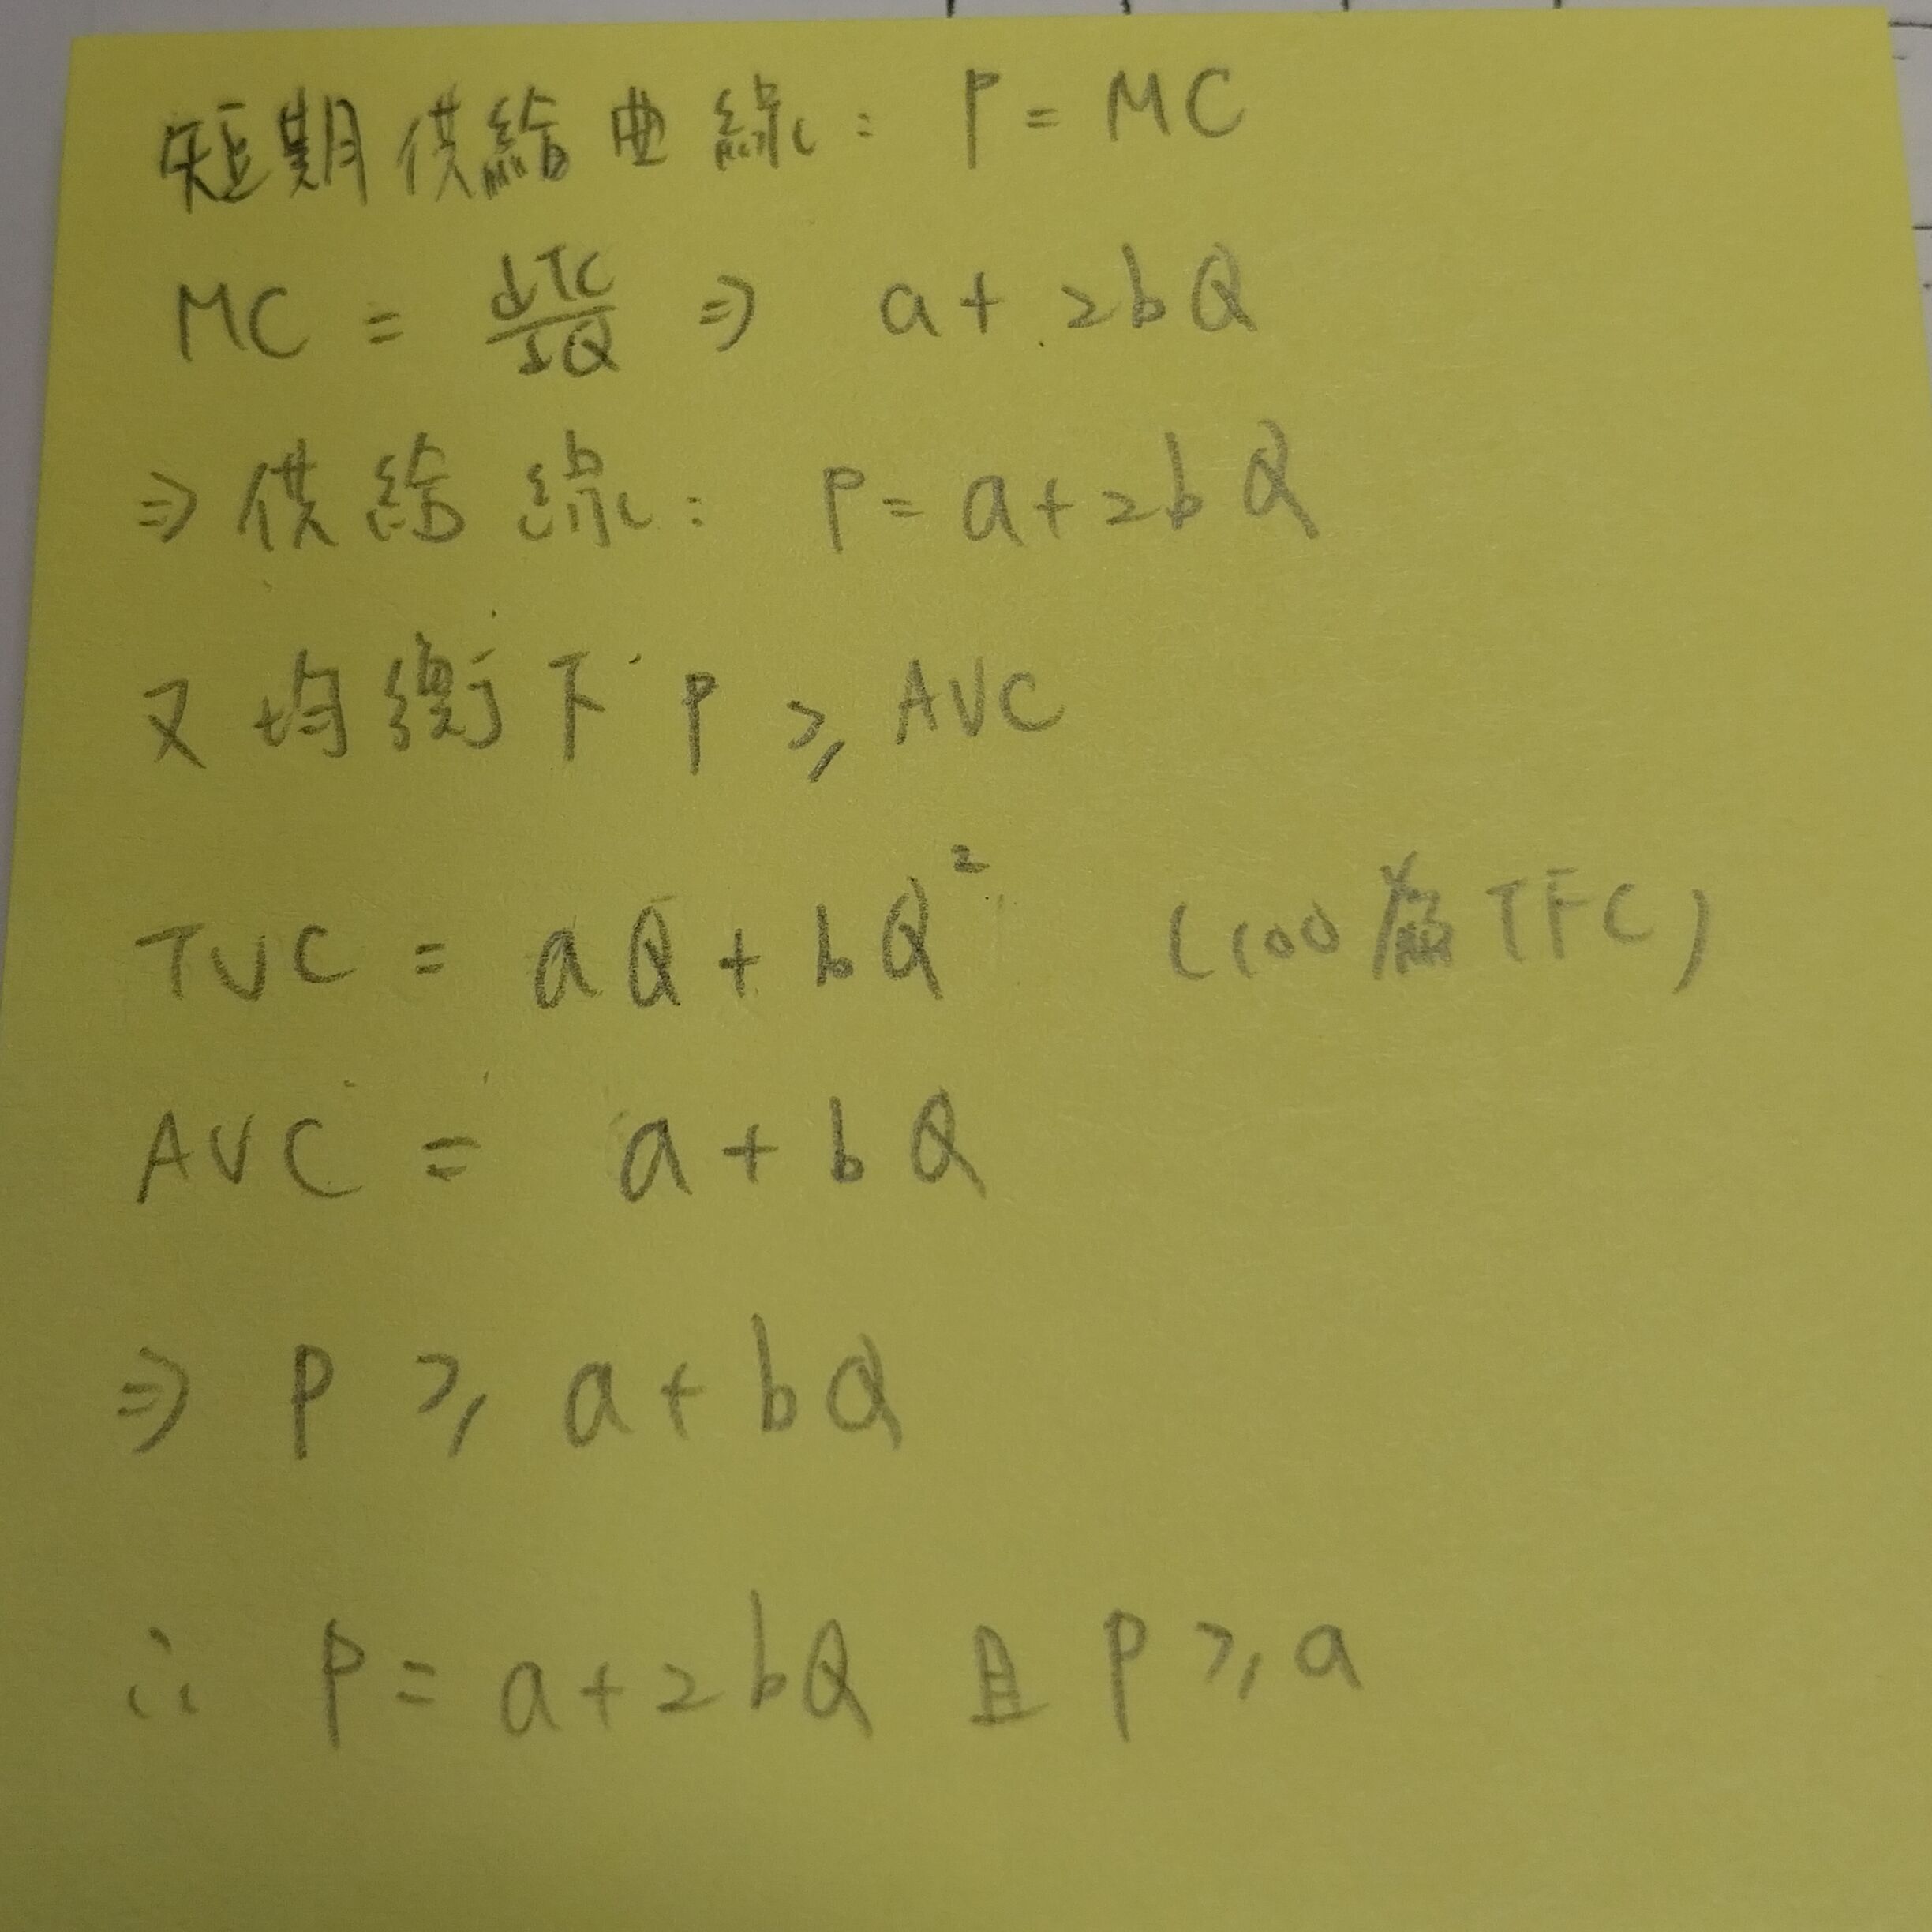 短期供給曲線: P = MC
MC = dTC/dQ ⇒ a + 2bQ
⇒ 供給線: P = a + 2bQ
又均衡下 P ≥ AVC
TVC = aQ + bQ² (100為TFC)
AVC = a + bQ
⇒ P ≥ a + bQ
∴ P = a + 2bQ 且 P ≥ a